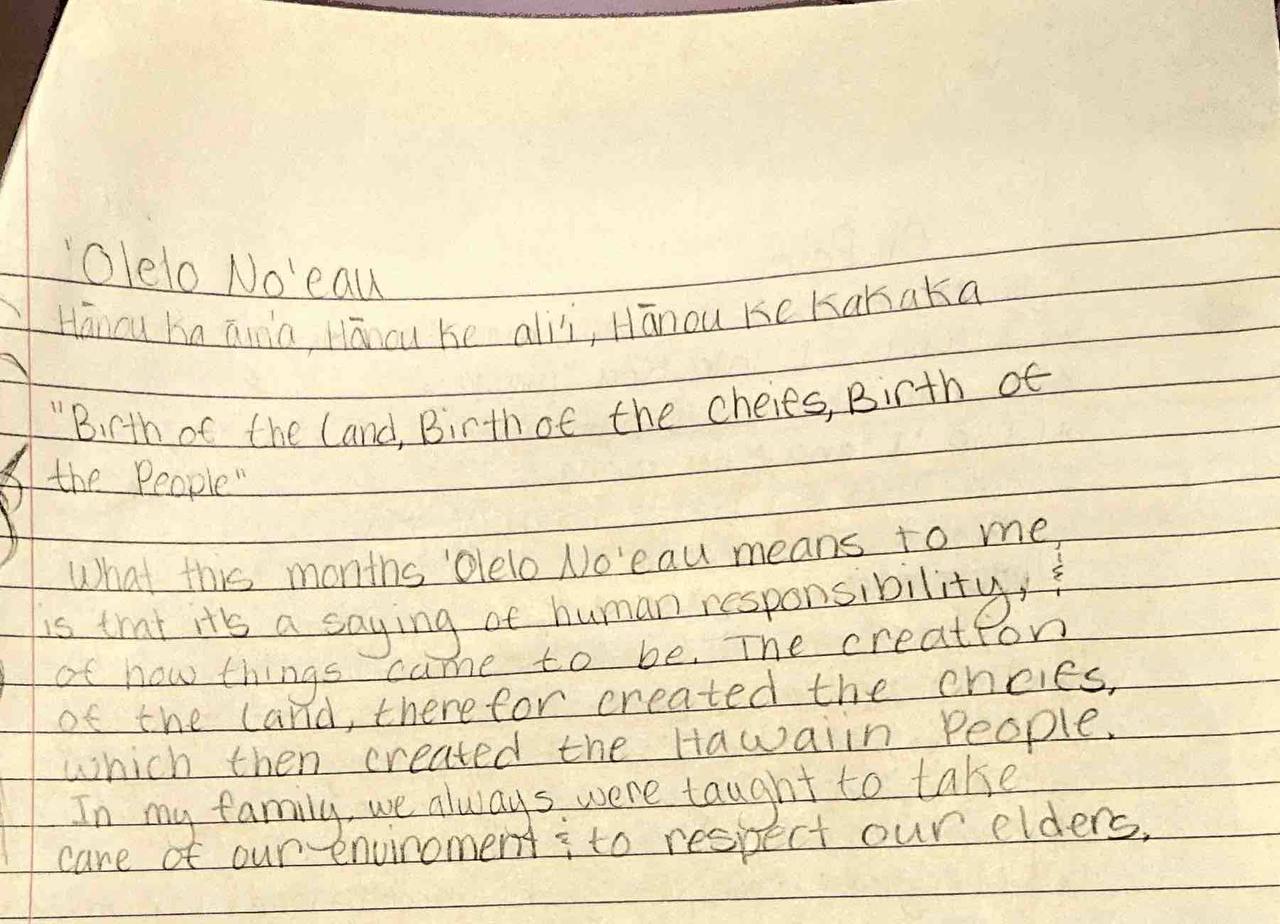 'Olelo No'eau
Hānau ka āin'a, Hānau ke ali'i, Hānou ke kakaka
"Birth of the Land, Birth of the cheifs, Birth of
the People"
What this months 'Olelo No'eau means to me,
is that it's a saying of human responsibility, &
of how things came to be. The creation
of the land, therefor created the cheifs,
which then created the Hawaiin People.
In my family, we always were taught to take
care of our enviroment & to respect our elders.